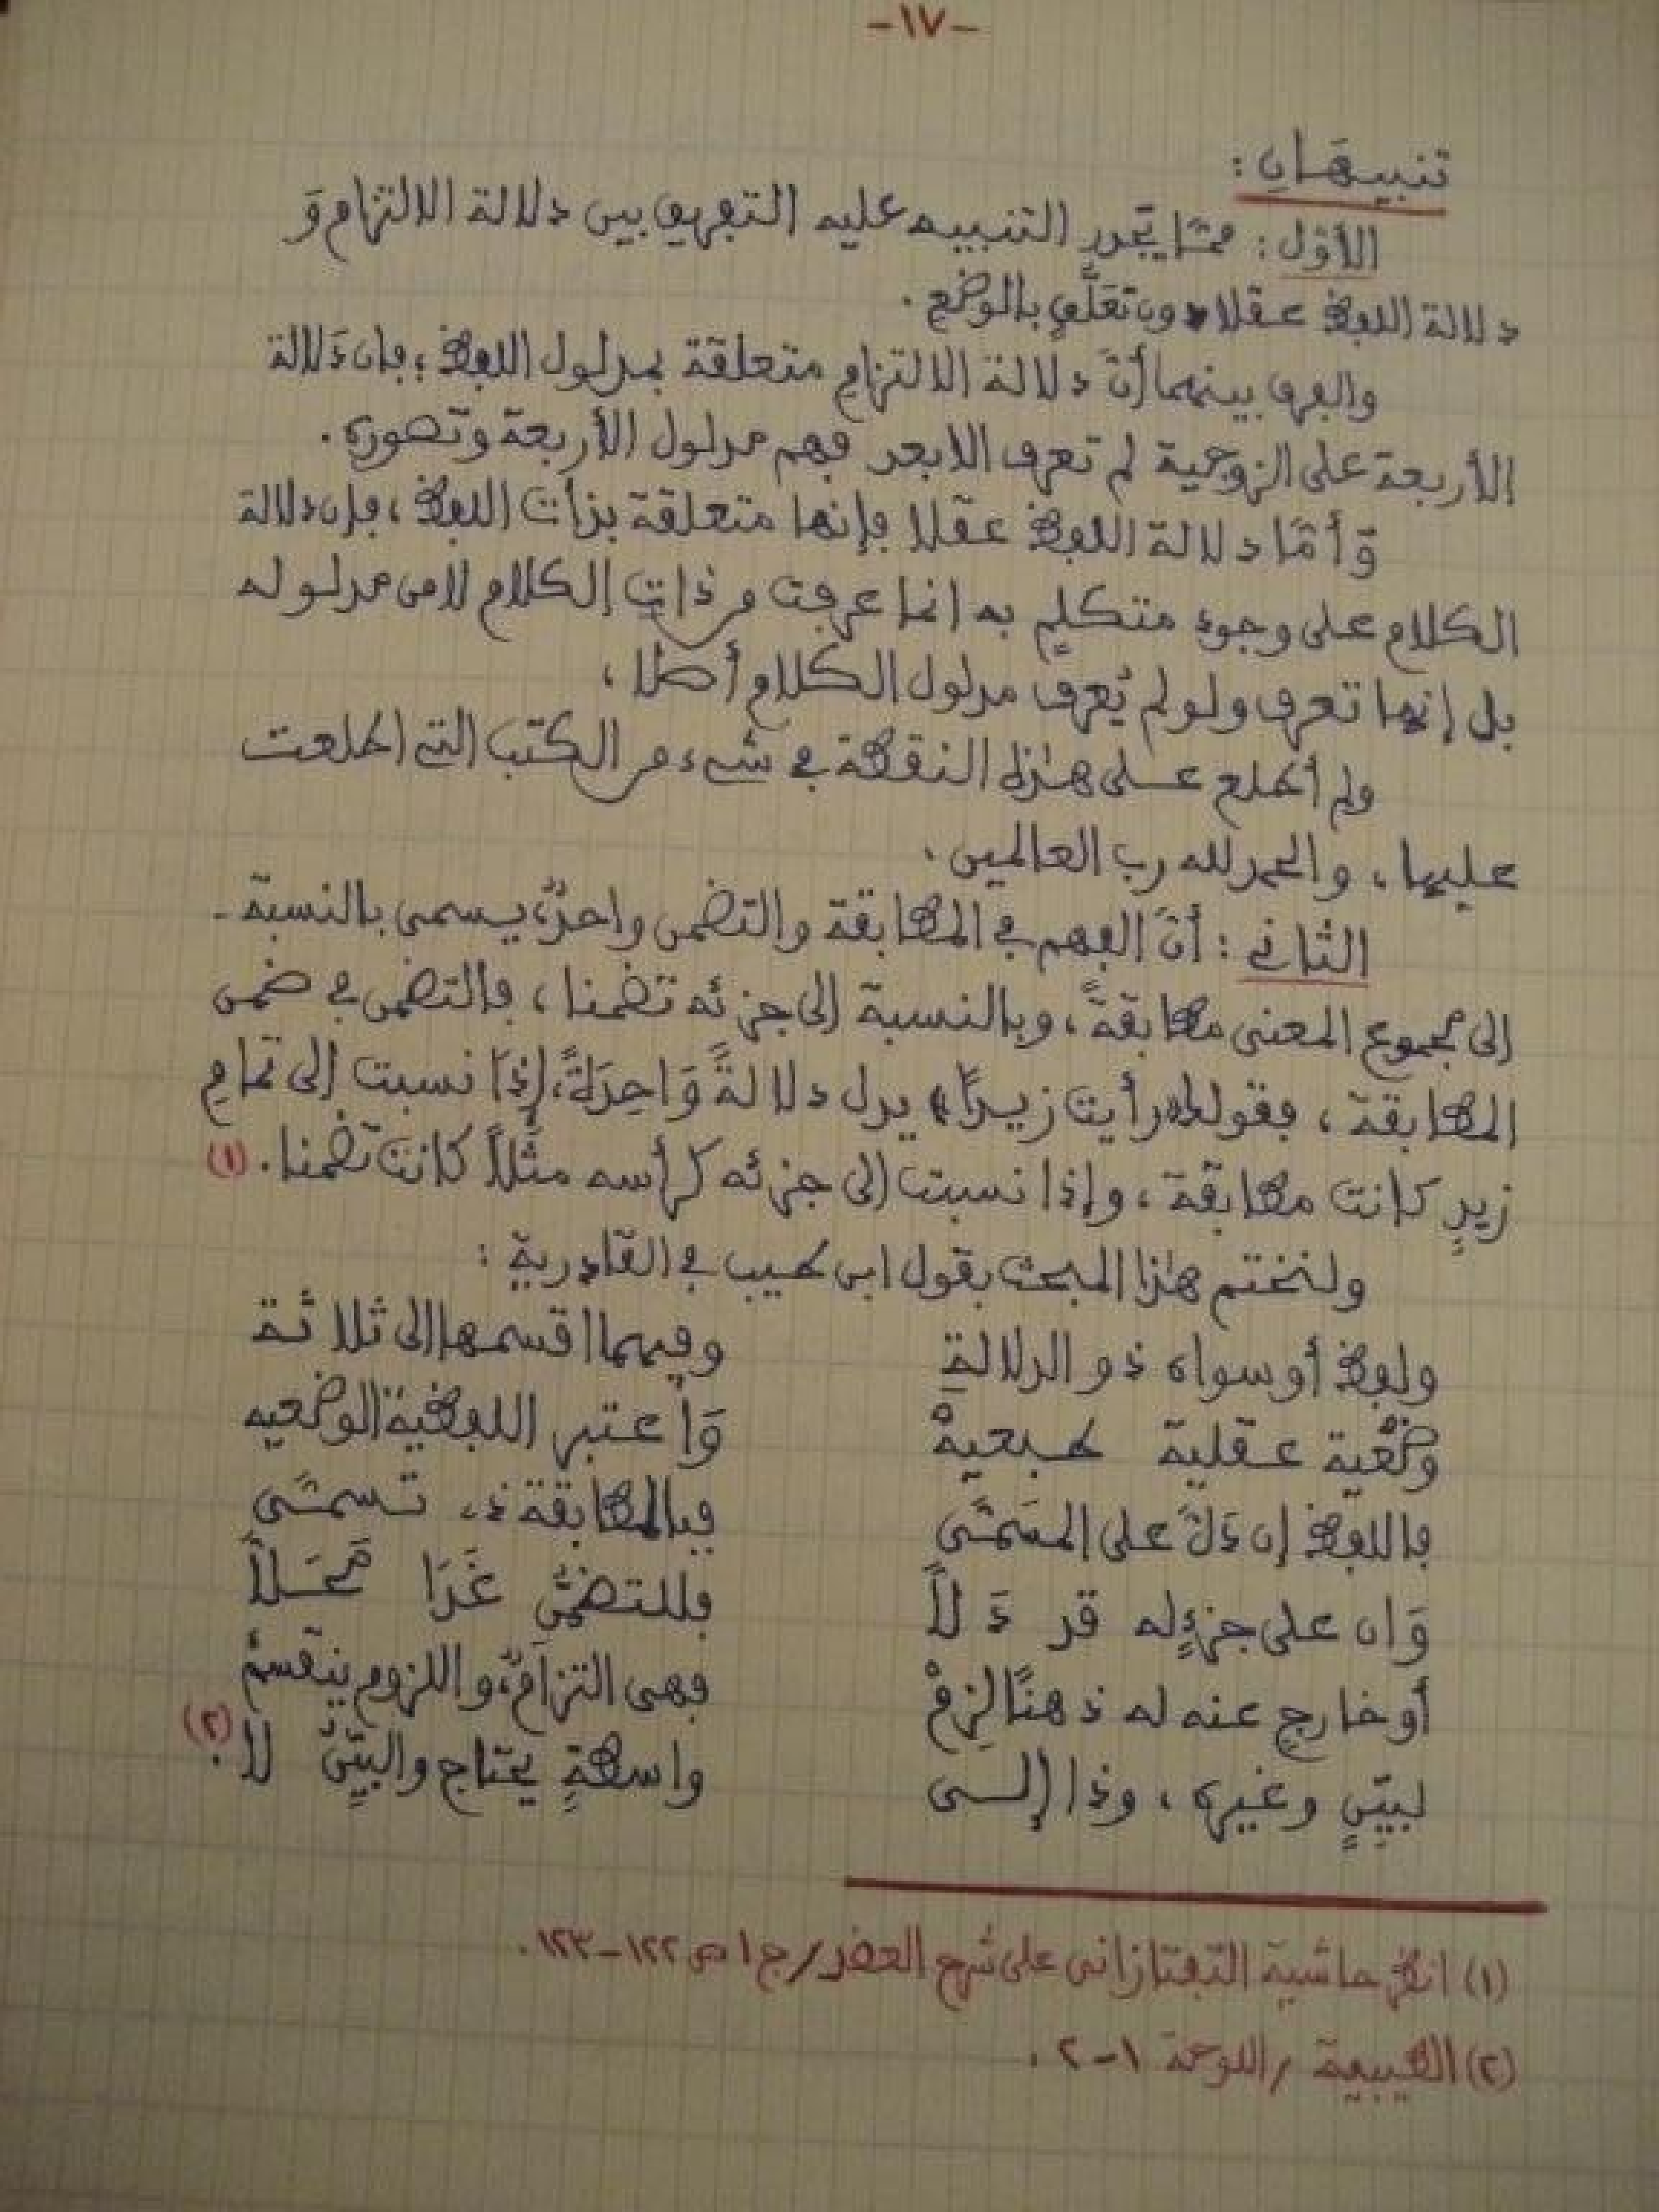 -١٧-
تنبيهان:
الأول: مما يجدر التنبيه عليه التفريق بين دلالة الالتزام وَ
دلالة اللفظ عقلا دون تعلّقٍ بالوضع.
والفرق بينهما أنّ دلالة الالتزام متعلقة بمدلول اللفظ؛ فإن دَلالة
الأربعة على الزوجية لم تعرف الا بعد فهم مدلول الأربعة وتصوره.
وَأمّا دلالة اللفظ عقلا فإنها متعلقة بذات اللفظ، فإن دلالة
الكلام على وجودِ متكلمٍ به انما عرفت من ذاتِ الكلام لا من مدلوله
بل إنها تعرف ولو لم يُعرف مدلول الكلام أصلا،
ولم أطلع على هذه النقطة في شيء من الكتب التي اطلعت
عليها، والحمد لله رب العالمين.
الثاني: أنّ الفهم في المطابقة والتضمن واحدٌ، يسمى بالنسبة -
إلى مجموع المعنى مطابقةً، وبالنسبة إلى جزئه تضمنا، فالتضمن في ضمن
المطابقة، فقولك «رأيت زيدًا» يدل دلالةً وَاحِدَةً، إذَا نسبت إلى تمامِ
زيدٍ كانت مطابقة، وإذا نسبت إلى جزئه كرأسه مثلاً كانت تضمنا. (١)
ولنختم هذا المبحث بقول ابن طيب في القادرية:
ولفظ أو سواه ذو الدلالةِ وفيهما اقسمها إلى ثلاثة
وضْعية عقلية طبعيهْ وَاعتبر اللفظية الوضعيه
فاللفظ إن دَلّ على المسَمّى فبالمطابقة ذي تسمّى
وَان على جزءٍ له قد دَلاَّ فللتضمّن غَدَا مَحَلاَّ
أو خارجٍ عنه له ذهنًا لزِمْ فهي التزامٌ، واللزوم ينقسمْ
لبيّنٍ وغيره، وذا إلى واسطةٍ يحتاج والبيّنُ لا. (٢)
(١) انظر حاشية التفتازاني على شرح العضد/ج١ ص ١٢٢-١٢٣.
(٢) الطيبية/اللوحة ١-٢.